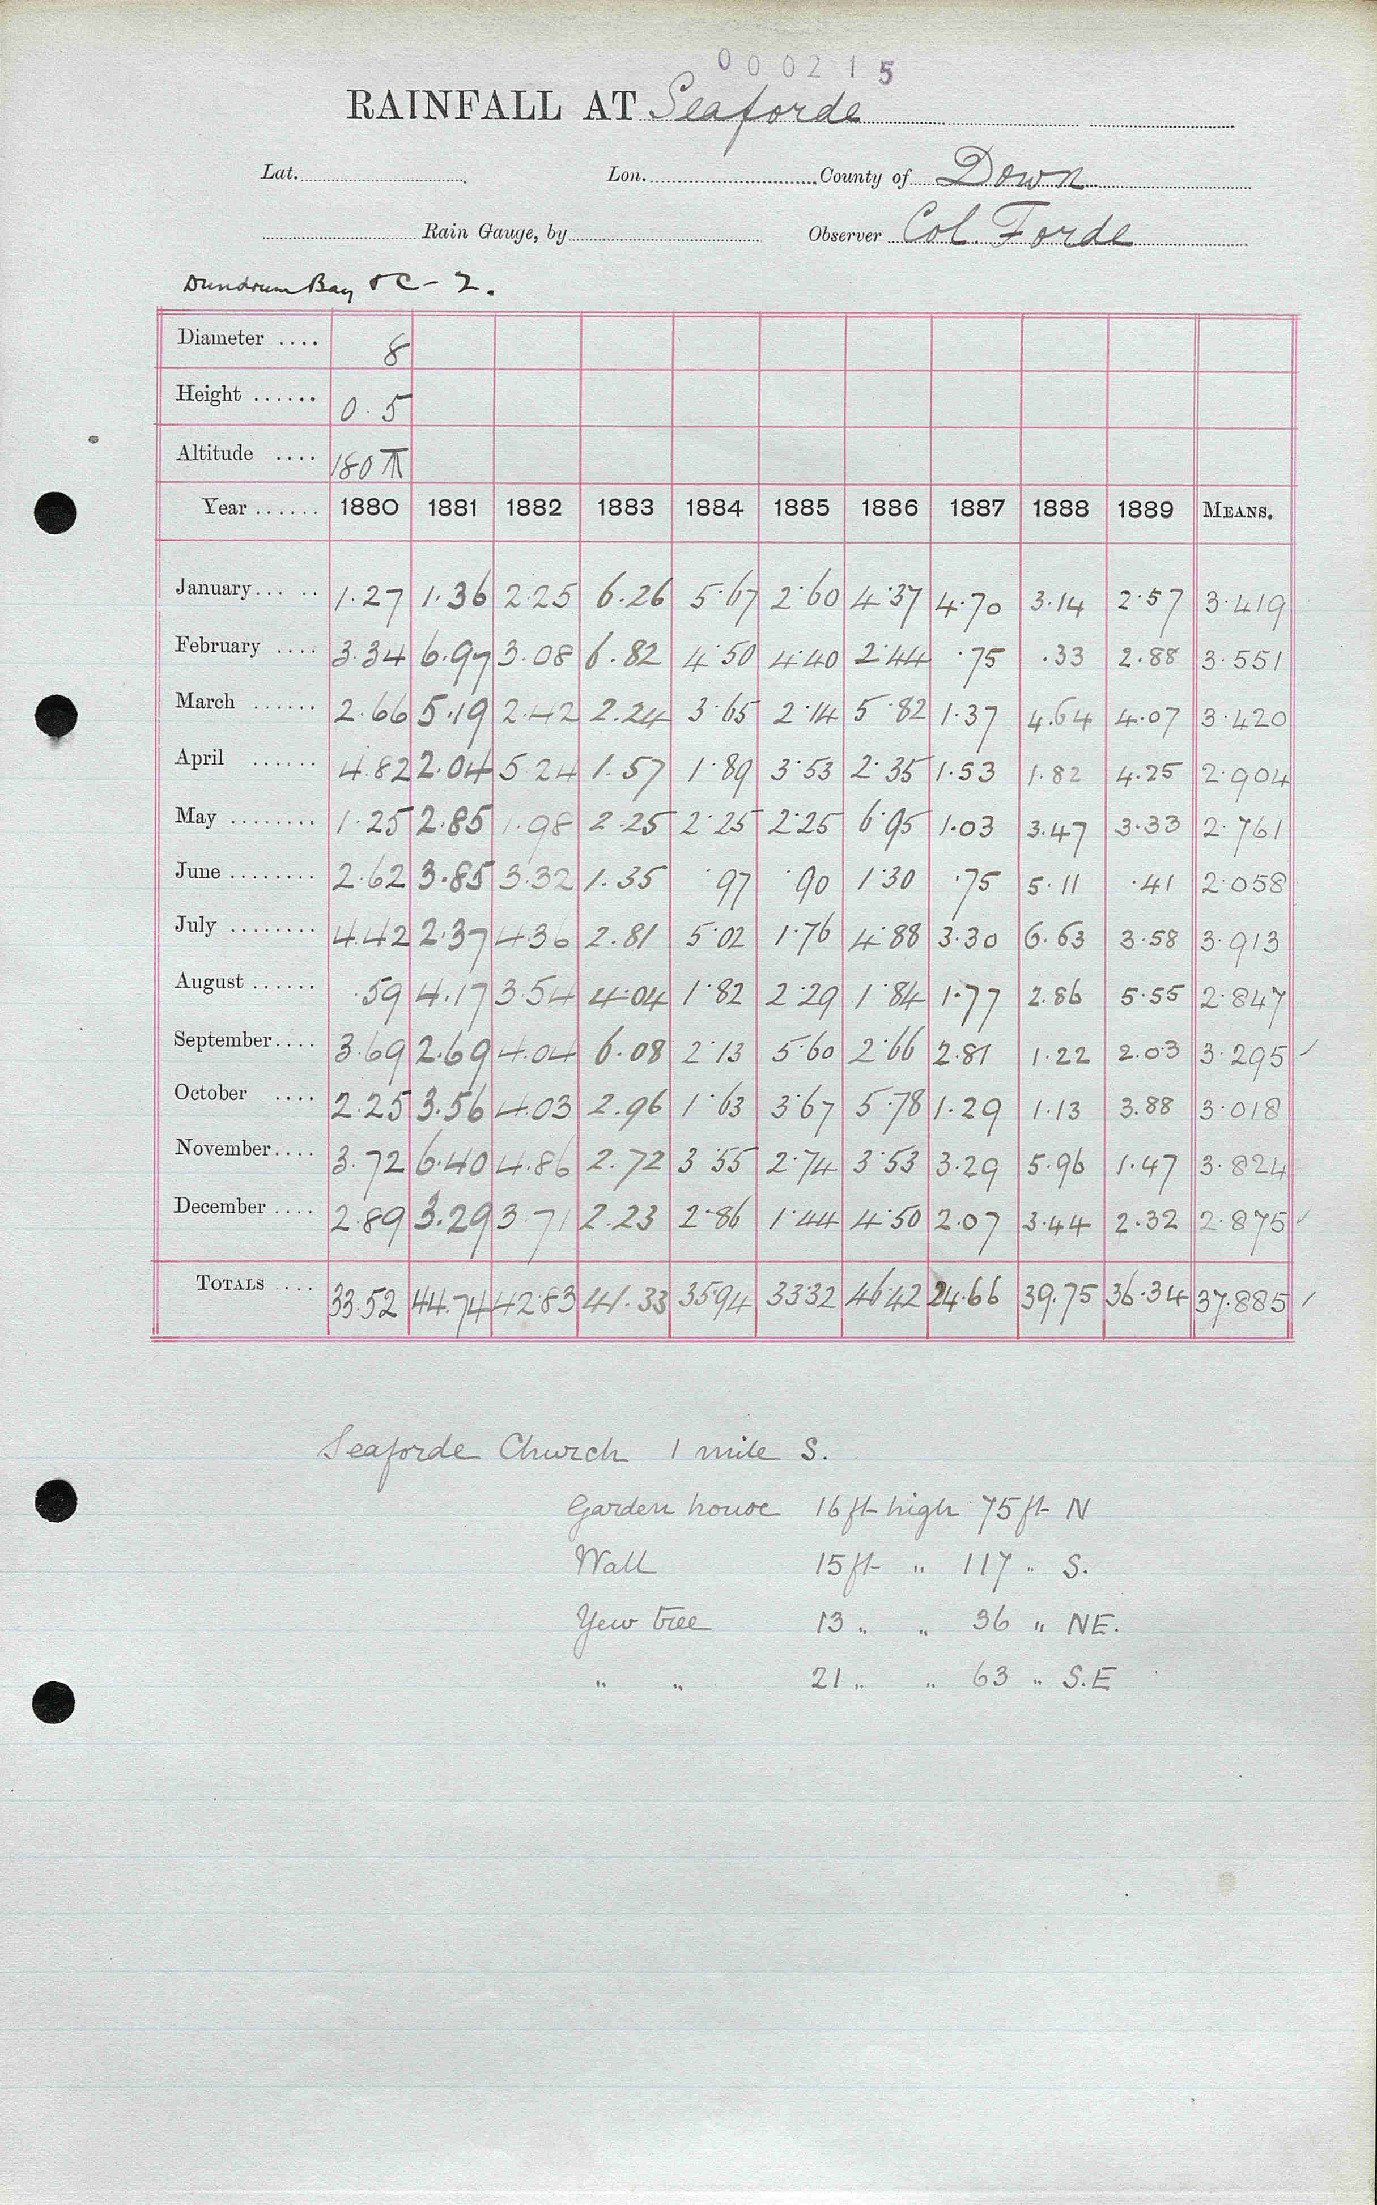 000215
RAINFALL AT Seaforde
Lat. Lon. County of Down
Rain Gauge, by Observer Col. Forde
Dundrum Bay & C - 2.
Diameter .... 8
Height ...... 0.5
Altitude .... 180 ft
Year ...... 1880 1881 1882 1883 1884 1885 1886 1887 1888 1889 MEANS.
January ..... 1.27 1.36 2.25 6.26 5.67 2.60 4.37 4.70 3.14 2.57 3.419
February .... 3.34 6.97 3.08 6.82 4.50 4.40 2.44 .75 .33 2.88 3.551
March ...... 2.66 5.19 2.42 2.24 3.65 2.14 5.82 1.37 4.64 4.07 3.420
April ...... 4.82 2.04 5.24 1.57 1.89 3.53 2.35 1.53 1.82 4.25 2.904
May ........ 1.25 2.85 1.98 2.25 2.25 2.25 6.95 1.03 3.47 3.33 2.761
June ........ 2.62 3.85 3.32 1.35 .97 .90 1.30 .75 5.11 .41 2.058
July ........ 4.42 2.37 4.36 2.81 5.02 1.76 4.88 3.30 6.63 3.58 3.913
August ...... .59 4.17 3.54 4.04 1.82 2.29 1.84 1.77 2.86 5.55 2.847
September .... 3.69 2.69 4.04 6.08 2.13 5.60 2.66 2.81 1.22 2.03 3.295 ✓
October .... 2.25 3.56 4.03 2.96 1.63 3.67 5.78 1.29 1.13 3.88 3.018
November .... 3.72 6.40 4.86 2.72 3.55 2.74 3.53 3.29 5.96 1.47 3.824
December .... 2.89 3.29 3.71 2.23 2.86 1.44 4.50 2.07 3.44 2.32 2.875 ✓
TOTALS .... 33.52 44.74 42.83 41.33 35.94 33.32 46.42 24.66 39.75 36.34 37.885 ✓
Seaforde Church 1 mile S.
Garden house 16 ft high 75 ft N
Wall 15 ft " 117 " S.
Yew tree 13 " " 36 " NE.
" " 21 " " 63 " S.E